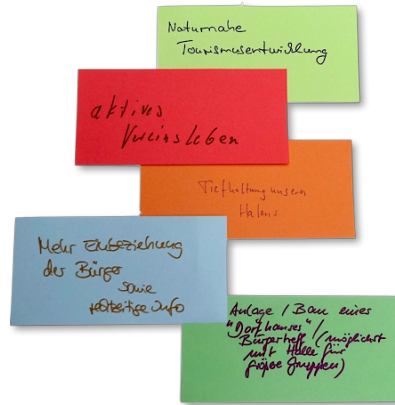 Naturnahe
Tourismusentwicklung
aktives
Vereinsleben
Tiefhaltung unseren
Hafens
Mehr Einbeziehung
der Bürger
sowie
rechtzeitige Info
Anlage / Bau eines
"Dorfhauses" /
Bürgertreff (möglichst
mit Halle für
größe Gruppen)